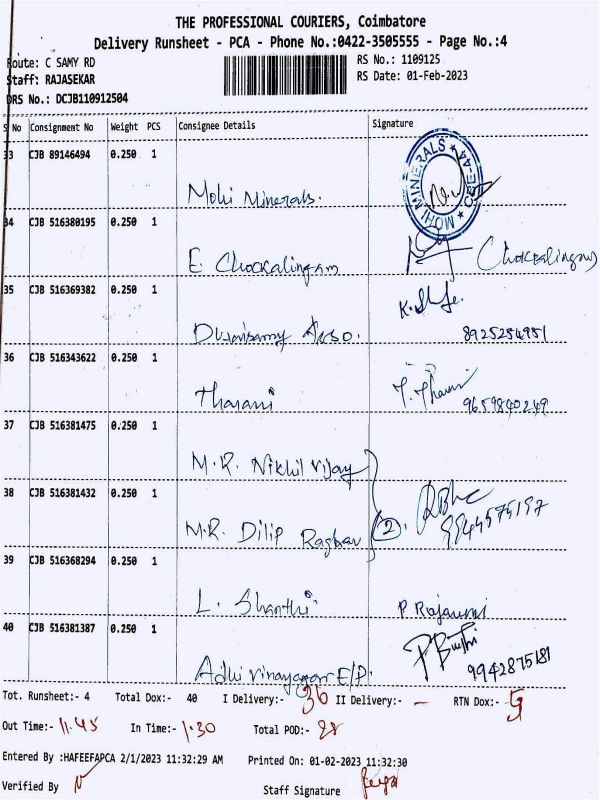 THE PROFESSIONAL COURIERS, Coimbatore
Delivery Runsheet - PCA - Phone No.:0422-3505555 - Page No.:4
Route: C SAMY RD
RS No.: 1109125
Staff: RAJASEKAR
RS Date: 01-Feb-2023
DRS No.: DCJB110912504
S No Consignment No Weight PCS Consignee Details Signature
33 CJB 89146494 0.250 1
MOHI MINERALS ★ CBE-44 ★
Mohi Minerals.
34 CJB 516380195 0.250 1
E Chockalingam Chockalingam
35 CJB 516369382 0.250 1
8925254951
36 CJB 516343622 0.250 1
Tharani
9659840249
37 CJB 516381475 0.250 1
M.R. Nikhil Vijay
38 CJB 516381432 0.250 1
M.R. Dilip Raghav 2. 9944575197
39 CJB 516368294 0.250 1
L. Shanthi
40 CJB 516381387 0.250 1
Adhi Vinayagar E/P. 9942875181
Tot. Runsheet:- 4 Total Dox:- 40 I Delivery:- 36 II Delivery:- - RTN Dox:-
Out Time:- 11.45 In Time:- 1.30 Total POD:- 28
Entered By :HAFEEFAPCA 2/1/2023 11:32:29 AM Printed On: 01-02-2023 11:32:30
Verified By
Staff Signature